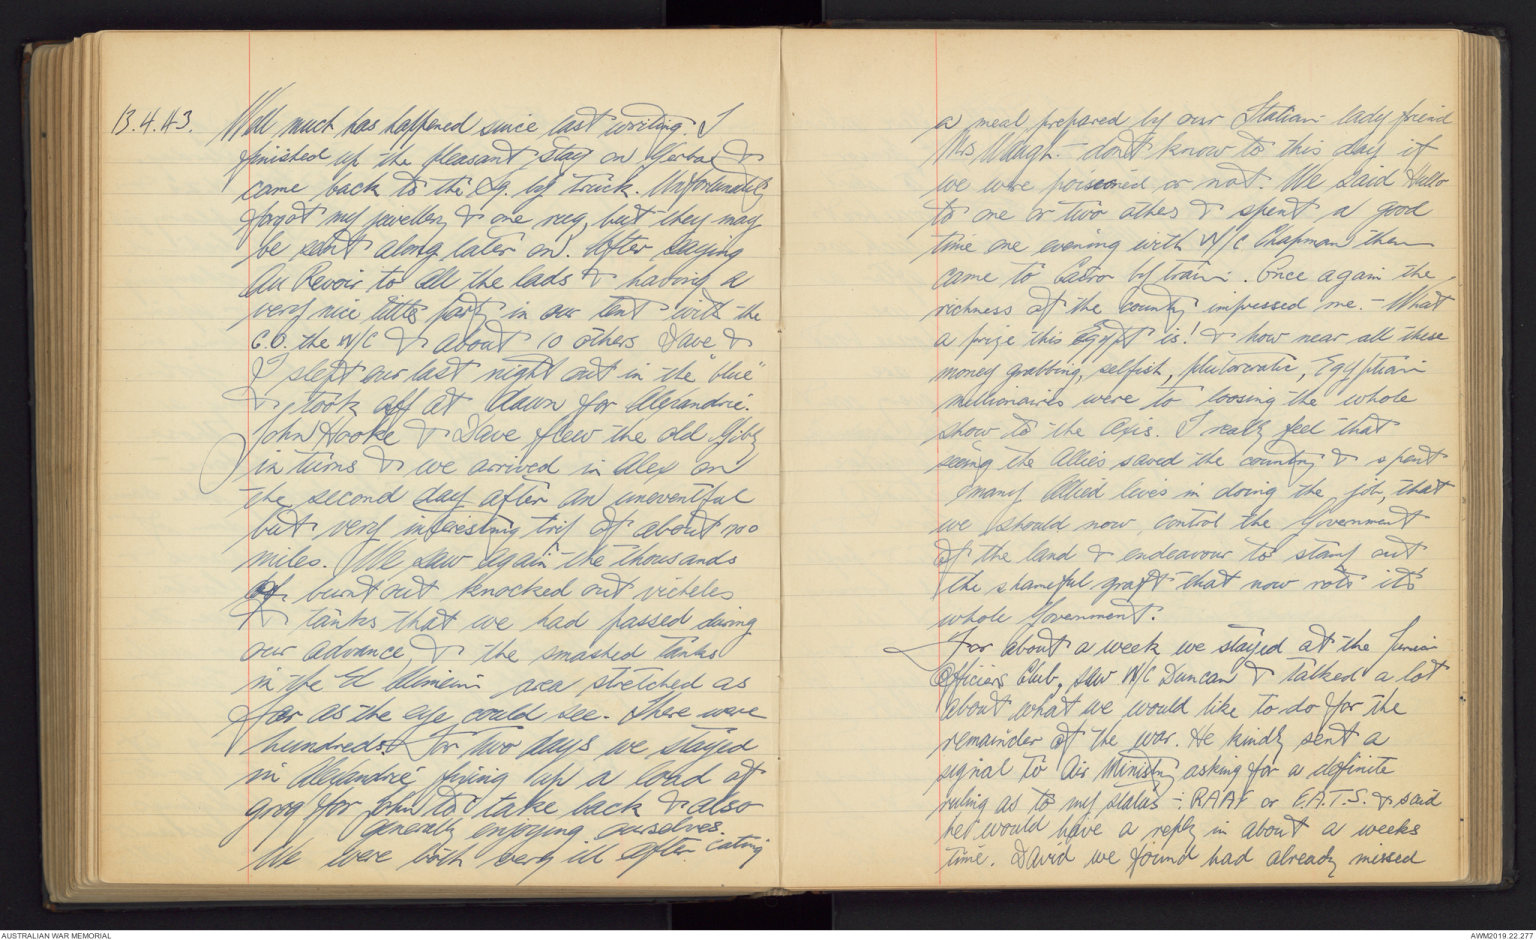 13.4.43. Well much has happened since last writing. I
finished up the pleasant stay on Gerba &
came back to the Sq. by truck. Unfortunately
forgot my jewellery & one rug, but they may
be sent along later on. After saying
Au Revoir to all the lads & having a
very nice little party in our tent with the
C.O. the W/C & about 10 others Dave &
I slept our last night out in the "blue"
& took off at dawn for Alexandrie.
John Hooke & Dave flew the old Gibly
in turns & we arrived in Alex on
the second day after an uneventful
but very interesting trip of about
miles. We saw again the thousands
of burnt out knocked out vicheles
& tanks that we had passed during
our advance, & the smashed tanks
in the El Alimein area stretched as
far as the eye could see. There were
hundreds. For two days we stayed
in Alexandrie, fixing up a load of
grog for John to take back & also
generally enjoying ourselves.
We were both very ill after eating
a meal prepared by our Italian lady friend
Mrs Waugh. - don't know to this day if
we were poisoned or not. We said Hello
to one or two others & spent a good
time one evening with W/C Chapman then
came to Cairo by train. Once again the
richness of the country impressed me. - What
a prize this Egypt is! & how near all these
money grabbing, selfish, plutocratic, Egyptian
millionaires were to loosing the whole
show to the Axis. I really feel that
seeing the Allies saved the country & spent
many Allied lives in doing the job, that
we should now control the Government
of the land & endeavour to stamp out
the shameful graft that now rots it's
whole Government.
For about a week we stayed at the Junior
Officers Club, saw W/C Duncan & talked a lot
about what we would like to do for the
remainder of the war. He kindly sent a
signal to Air Ministry asking for a definite
ruling as to my status :- RAAF or E.A.T.S. & said
he would have a reply in about a weeks
time. David we found had already missed
AUSTRALIAN WAR MEMORIAL
AWM2019.22.277